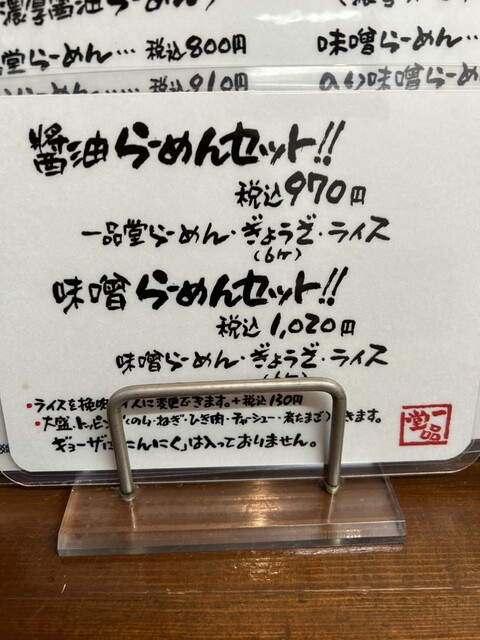 濃厚醤油らーめん
堂らーめん… 税込800円
味噌らーめん…
らーめん…… 税込910円
のり味噌らーめ
醬油らーめんセット!!
税込970円
一品堂らーめん・ぎょうざ・ライス
(6ケ)
味噌らーめんセット!!
税込1,020円
味噌らーめん・ぎょうざ・ライス
・ライスを挽肉 イスに変更できます。+税込130円
・大盛、トッピン (のり・ねぎ・ひき肉・チャーシュー・煮たまご) きます。
ギョーザに にんにくは入っておりません。
一品堂